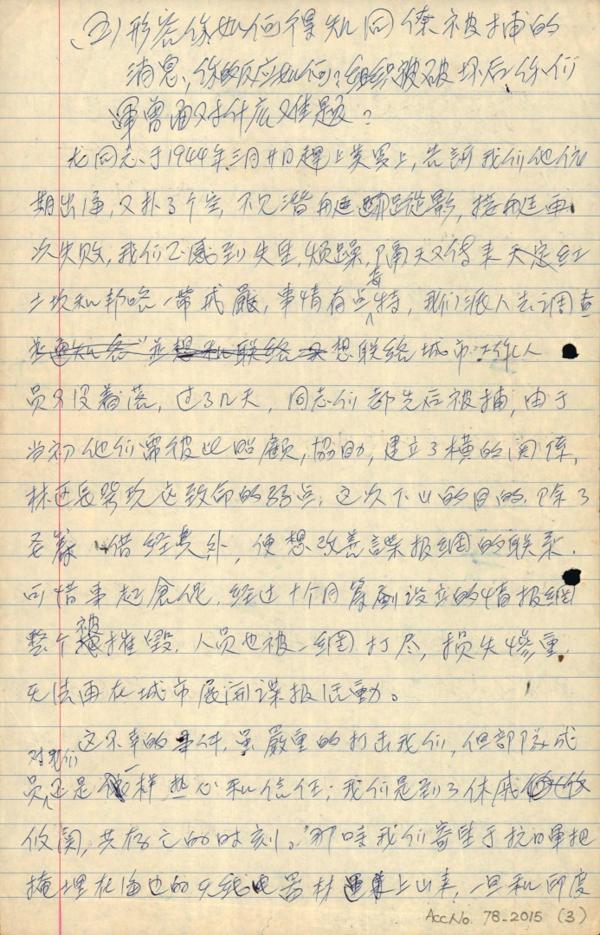 (五) 形容你如何得知同僚被捕的
消息，你的反应如何？组织被破坏后你们
曾面对什应难题？
龙同志于1944年三月廿日赶上美罗上，告诉我们他依
期出海，又扑了个空，不见潜艇踪影，接艇再
次失败，我们正感到失望，烦躁，隔天又传来天定红
土坎和邦咯一带戒嚴，事情有点奇特，我们派人去调查
並想联络城市工作人
员多没着落，过了几天，同志们都先后被捕，由于
当初他们需彼此照顾，協助，建立了横的関係，
林区長発现这致命的弱点，这次下山的目的，除了
筹借经费外，便想改善諜报網的联系．
可惜事起倉促，经过十个月策劃设立的情报網
整个被摧毁，人员也被一網打尽，损失惨重．
无法再在城市展開諜报活動。
这不幸的事件，虽嚴重的打击我们，但部隊成
员对我们还是一样热心和信任；我们是到了休戚
攸関，共存亡的时刻。那時我们寄望于抗日軍把
掩埋在海边的无线电器材運上山来，一旦和印度
AccNo. 78-2015 (3)